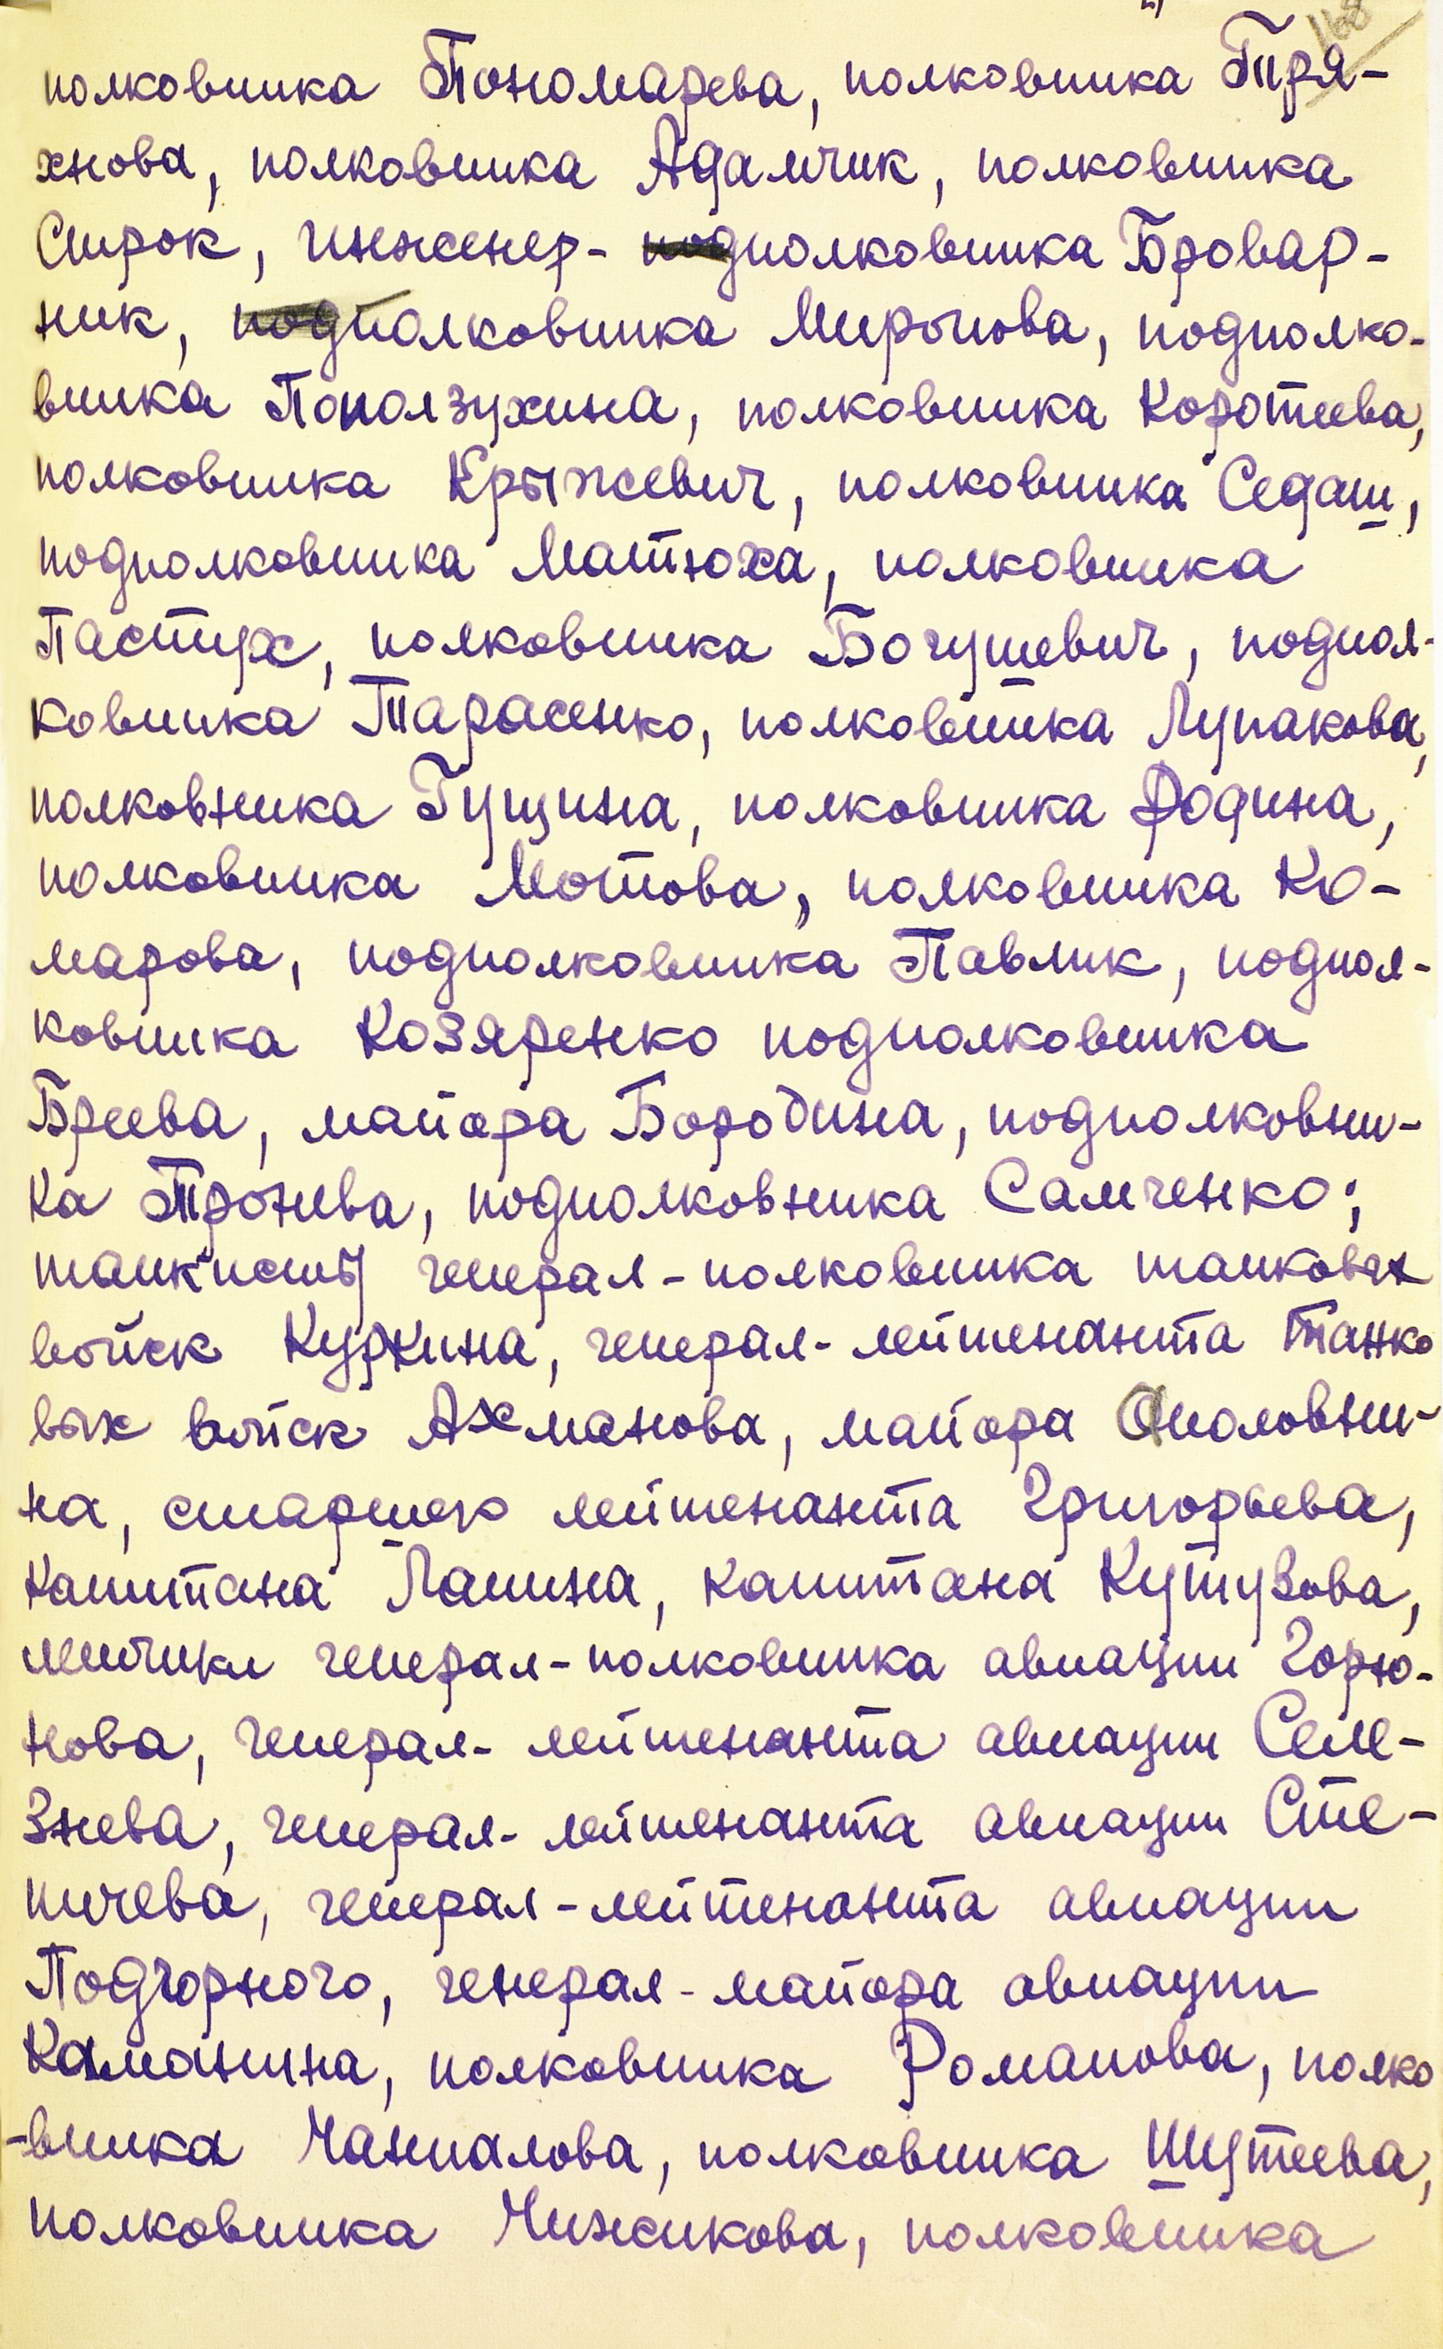 168
полковника Пономарева, полковника Тря-
хнова, полковника Адамчик, полковника
Сирок, инженер- подполковника Бровар-
ник, подполковника Миронова, подполко-
вника Поползухина, полковника Коротеева,
полковника Крыжевич, полковника Седаш,
подполковника Матюха, полковника
Пастух, полковника Богушевич, подпол-
ковника Тарасенко, полковника Лупакова,
полковника Гущина, полковника Родина,
полковника Мотова, полковника Ко-
марова, подполковника Павлик, подпол-
ковника Козяренко подполковника
Бреева, майора Бородина, подполковни-
ка Тронева, подполковника Самченко;
танкисты генерал-полковника танковых
войск Куркина, генерал-лейтенанта танко
вых войск Ахманова, майора Ополовни-
на, старшего лейтенанта Григорьева,
капитана Лапина, капитана Кутузова,
летчики генерал-полковника авиации Горю-
нова, генерал-лейтенанта авиации Селе-
знева, генерал-лейтенанта авиации Сте-
пичева, генерал-лейтенанта авиации
Подгорного, генерал-майора авиации
Каманина, полковника Романова, полко
-вника Чанпалова, полковника Шутеева,
полковника Чижикова, полковника